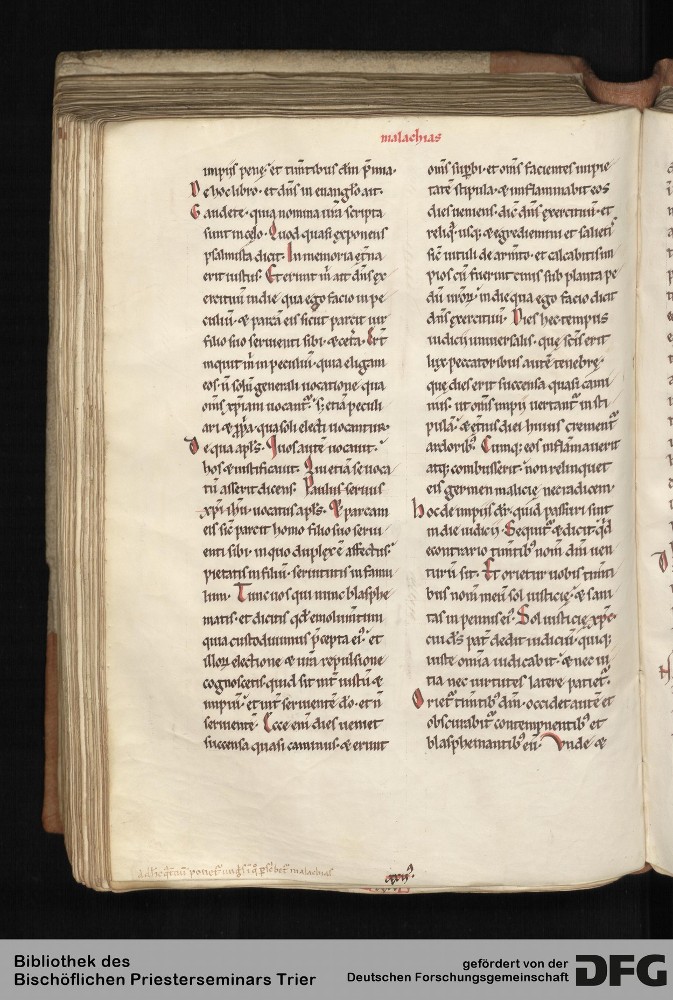 malachias
impiis pene. et timẽtibus dñm p̃mia.
De hoc libro. et dñs in euanglõ ait.
Gaudete. quia nomina ur̃a scripta
sunt in cęlo. Quod quasi exponens
psalmista dicit. In memoria etña
erit iustus. Et erunt m̃ ait dñs ex
ercituũ in die qua ego facio in pe
culiũ. & parcã eis sicut parcit uir
filio suo seruienti sibi. & cetã. Ert̃
inquit m̃ in peculiũ. quia eligam
eos ñ solũ generali uocatione qua
om̃s xp̃iani uocant᷑. s; etiã peculi
ari. & ꝓpa. qua soli electi uocantur.
De qua apls̃. Quos autẽ uocauit.
hos & iustificauit. Qui etiã se uoca
tũ asserit dicens. Paulus seruus
xp̃i ihũ. uocatus apls̃. Et parcam
eis sic̃ parcit homo filio suo serui
enti sibi. in quo duplex ẽ affectus.
pietatis in filiũ. seruitutis in famu
lum. Tunc uos qui nunc blasphe
matis. et dicitis qd̃ emolumtum
quia custodiuimus p̃cepta ei᷒. et
illoꝝ electione & ur̃a repulsione
cognoscetis quid sit int̃ iustũ &
impiũ. et int̃ seruientẽ dõ. et ñ
seruientẽ. Ecce enĩ dies ueniet
succensa quasi caminus. & erunt
om̃s supbi. et om̃s facientes impie
tatẽ stipula. & inflammabit eos
dies ueniens. dic̃ dñs exercituũ. et
reliq̃. usq; & egrediemini et salieti᷒
sic̃ uituli de armto. et calcabitis im
pios cũ fuerint cinis sub planta pe
dũ ur̃oꝝ. in die qua ego facio dicit
dñs exercituũ. Dies hec tempus
iudicii uniuersalis. que scis̃ erit
lux. peccatoribus autẽ tenebre.
que dies erit succensa quasi cami
nus. ut om̃s impii uertant᷑ in sti
pulã. & et̃nis diei huius crement᷑
ardorib᷒. Cumq; eos inflamauerit
atq; combusserit. non relinquet
eis germen malicie nec radicem.
Hoc de impiis dr̃. quid passuri sunt
in die iudicii. Sequit᷑ & dicit. qd̃
econtrario timtib᷒ nom̃ dñi uen
turũ sit. Et orietur uobis timti
bus nom̃ meũ sol iusticię. & sani
tas in pennis ei᷒. Sol iusticię xp̃c.
cui ds̃ pat̃ dedit iudiciũ. quiq;
iuste omnia iudicabit. & nec ui
tia nec uirtutes latere patiet᷑.
Oriet᷑ timtib᷒ dñm. occidet autẽ et
obscurabit᷑ contempnentib᷒ et
blasphemantib᷒ eũ. Vnde &
malachias
Bibliothek des
Bischöflichen Priesterseminars Trier
gefördert von der
Deutschen Forschungsgemeinschaft
DFG